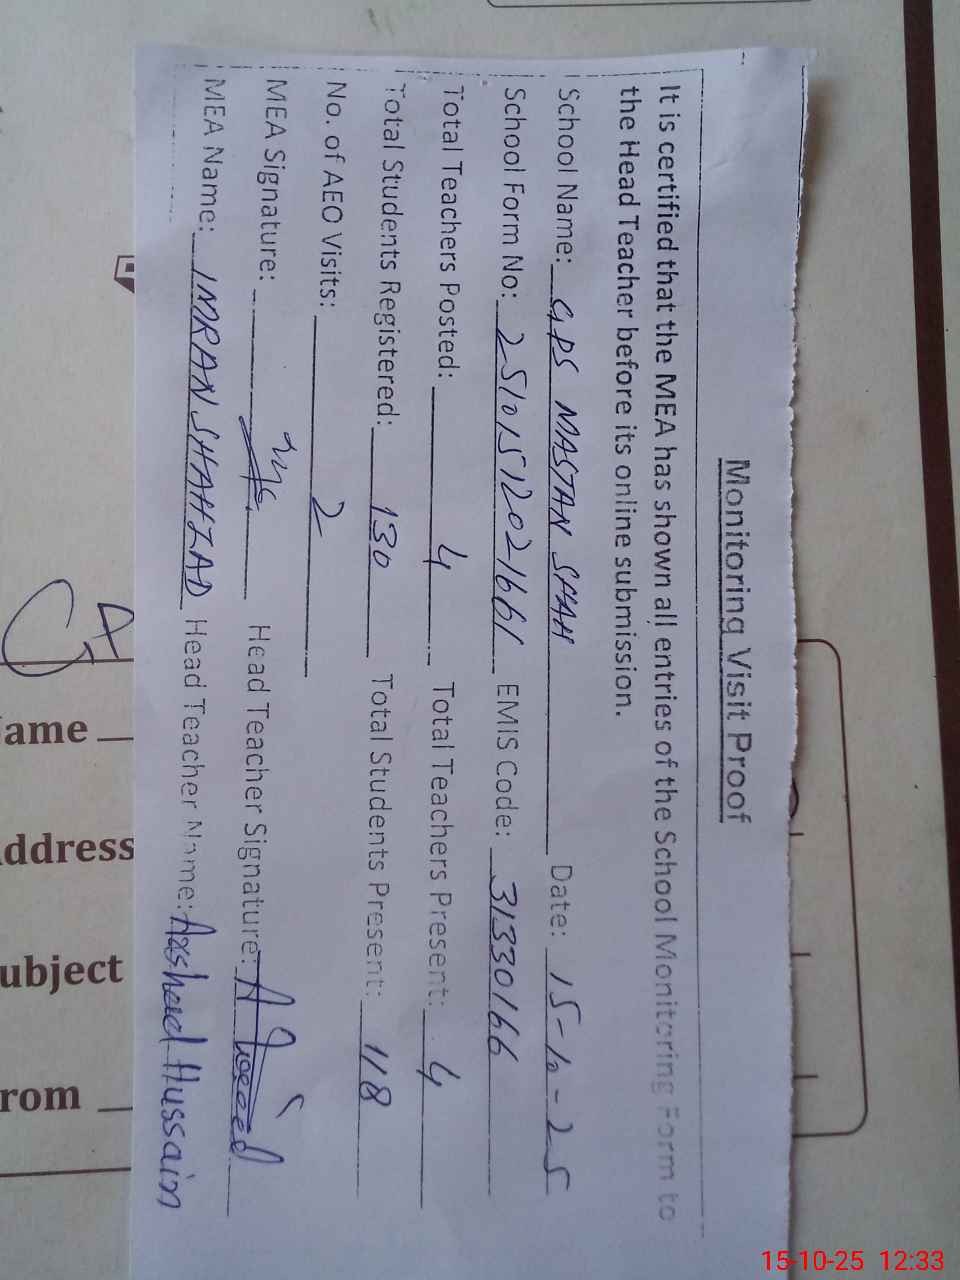 Monitoring Visit Proof
It is certified that the MEA has shown all entries of the School Monitoring Form to
the Head Teacher before its online submission.
School Name: GPS MASTAN SHAH Date: 15-10-25
School Form No: 2510151202166 1 EMIS Code: 31330166
Total Teachers Posted: 4 Total Teachers Present: 4
Total Students Registered: 130 Total Students Present: 118
No. of AEO Visits: 2
MEA Signature: Head Teacher Signature:
MEA Name: IMRAN SHAHZAD Head Teacher Name: Aashead Hussain
ame
ddress
ubject
rom
15-10-25 12:33